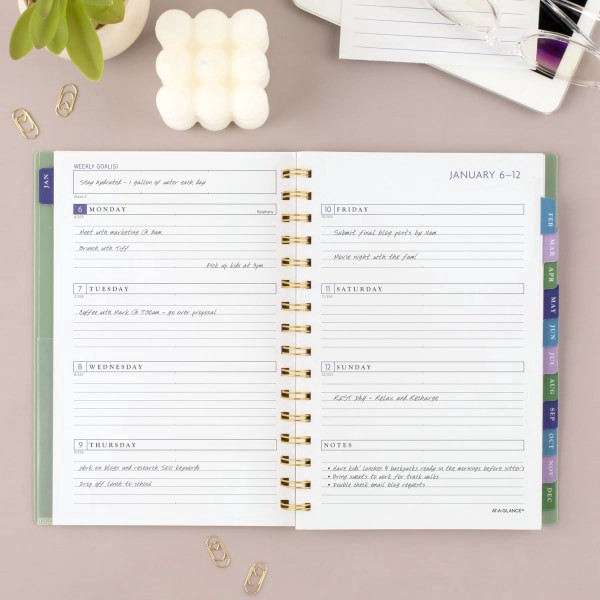 WEEKLY GOAL(S)
Stay hydrated - 1 gallon of water each day
Week 2
JAN
JANUARY 6-12
6 MONDAY
Epiphany
Meet with marketing @ 9am
Brunch with Tiff
Pick up kids at 3pm
7 TUESDAY
Coffee with Mark @ 7:30am - go over proposal
8 WEDNESDAY
9 THURSDAY
Work on blogs and research SEO keywords
Drop off lunch to school
10 FRIDAY
Submit final blog posts by 11am
Movie night with the fam!
11 SATURDAY
12 SUNDAY
REST Day - Relax and Recharge
NOTES
• Have kids' lunches & backpacks ready in the mornings before sitter's
• Bring sweets to work for
• Double check email blog requests
AT-A-GLANCE®
FEB
MAR
APR
MAY
JUN
JUL
AUG
SEP
OCT
NOV
DEC